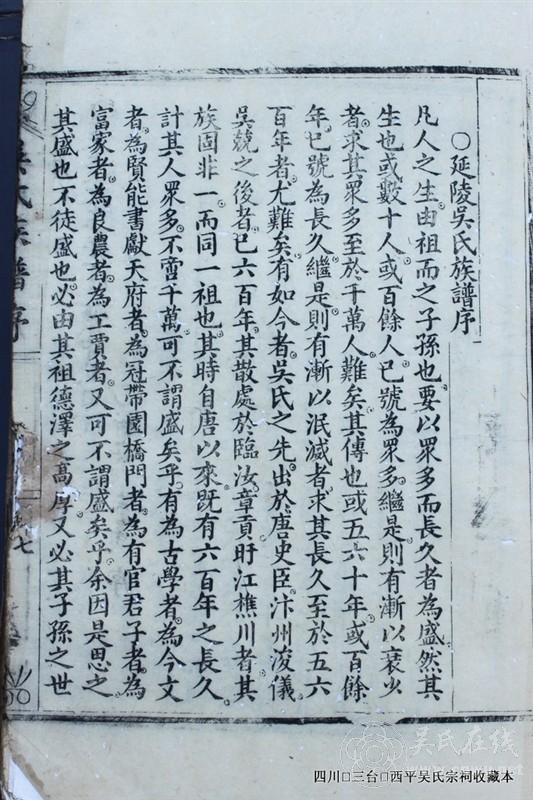 ○延陵吳氏族譜序
凡人之生由祖而之子孫也要以眾多而長久者為盛然其
生也或數十人或百餘人已號為眾多繼是則有漸以衰少
者求其眾多至於千萬人難矣其傳也或五六十年或百餘
年已號為長久繼是則有漸以泯滅者求其長久至於五六
百年者尤難矣有如今者吳氏之先出於唐史臣汴州浚儀
吳兢之後者已六百年其散處於臨汝章貢盱江樵川者其
族固非一而同一祖也其時自唐以來既有六百年之長久
計其人眾多不啻千萬可不謂盛矣乎有為古學者為今文
者為賢能書獻天府者為冠帶園橋門者為有官君子者為
富家者為良農者為工賈者又可不謂盛矣乎余因是思之
其盛也不徒盛也必由其祖德澤之高厚又必其子孫之世
吳氏族譜序
七
吴氏在线
四川□三台□西平吴氏宗祠收藏本